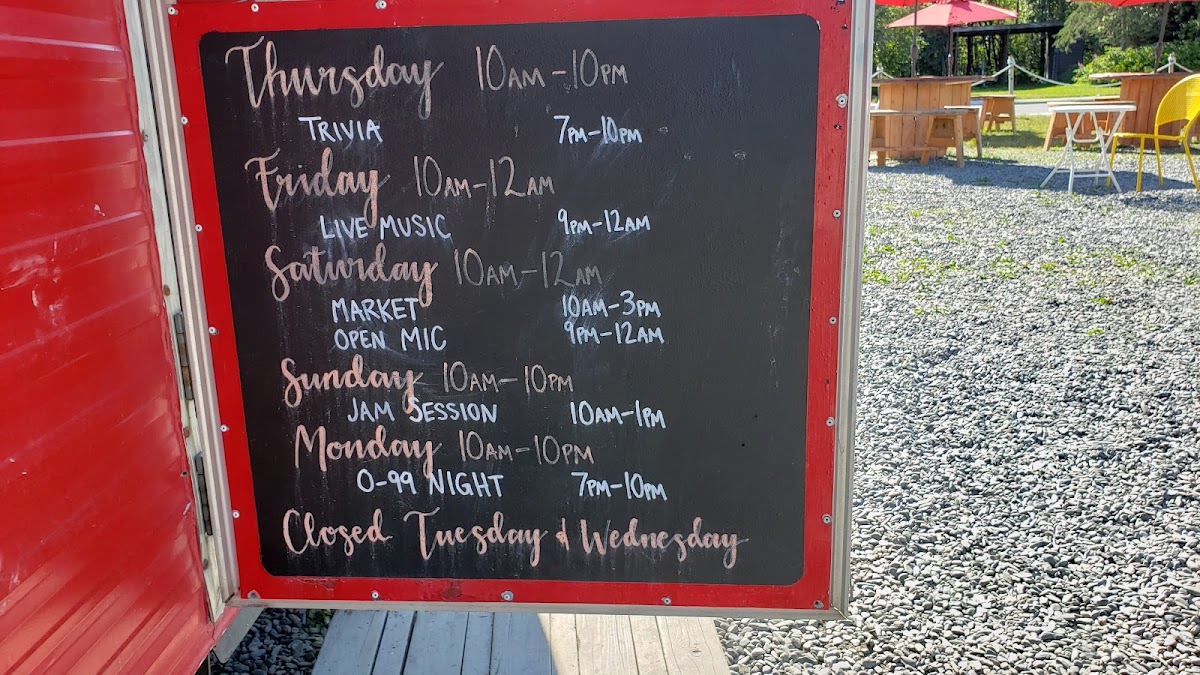 Thursday 10AM-10PM
TRIVIA 7PM-10PM
Friday 10AM-12AM
LIVE MUSIC 9PM-12AM
Saturday 10AM-12AM
MARKET 10AM-3PM
OPEN MIC 9PM-12AM
Sunday 10AM-10PM
JAM SESSION 10AM-1PM
Monday 10AM-10PM
0-99 NIGHT 7PM-10PM
Closed Tuesday & Wednesday